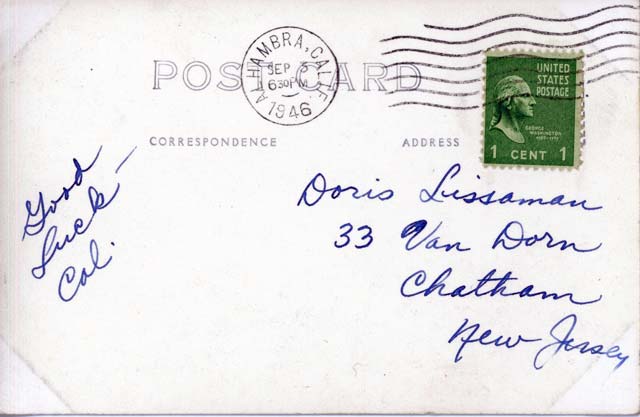 POST CARD
ALHAMBRA, CALIF.
SEP 5
6 30 PM
1946
UNITED
STATES
POSTAGE
GEORGE
WASHINGTON
1 CENT 1
CORRESPONDENCE
ADDRESS
Good
Luck —
Cal.
Doris Lissaman
33 Van Dorn
Chatham
New Jersey